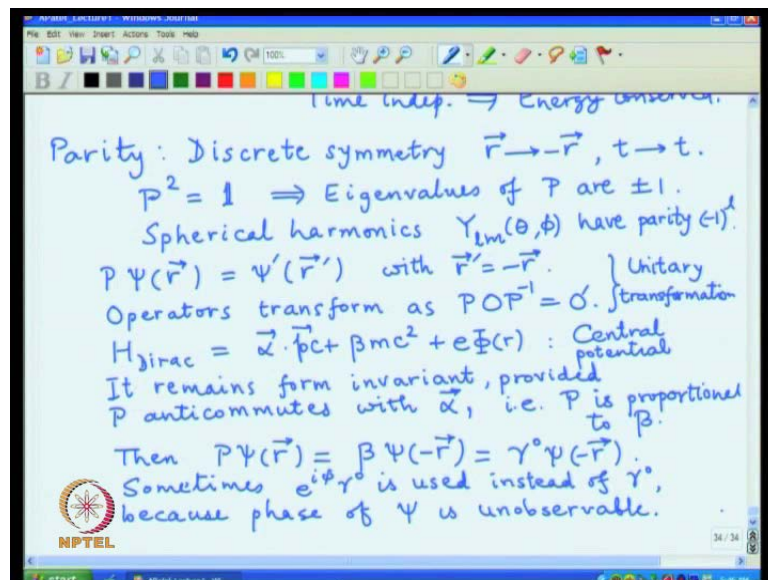 APatel_Lecture1 - Windows Journal
File Edit View Insert Actions Tools Help
100%
B I
Time indep. ⟹ Energy conserved.
Parity : Discrete symmetry r⃗ → -r⃗ , t → t.
P² = 1 ⟹ Eigenvalues of P are ±1.
Spherical harmonics Yₗₘ(θ,ϕ) have parity (-1)ˡ.
P Ψ(r⃗) = Ψ'(r⃗') with r⃗' = -r⃗. } Unitary
Operators transform as P O P⁻¹ = O'. } transformation
H_Dirac = α⃗ · p⃗c + βmc² + eΦ(r) : Central potential
It remains form invariant, provided
P anticommutes with α⃗, i.e. P is proportional to β.
Then PΨ(r⃗) = β Ψ(-r⃗) = γ⁰ Ψ(-r⃗).
Sometimes e^{iϕ} γ⁰ is used instead of γ⁰,
because phase of Ψ is unobservable.
NPTEL
34 / 34
start